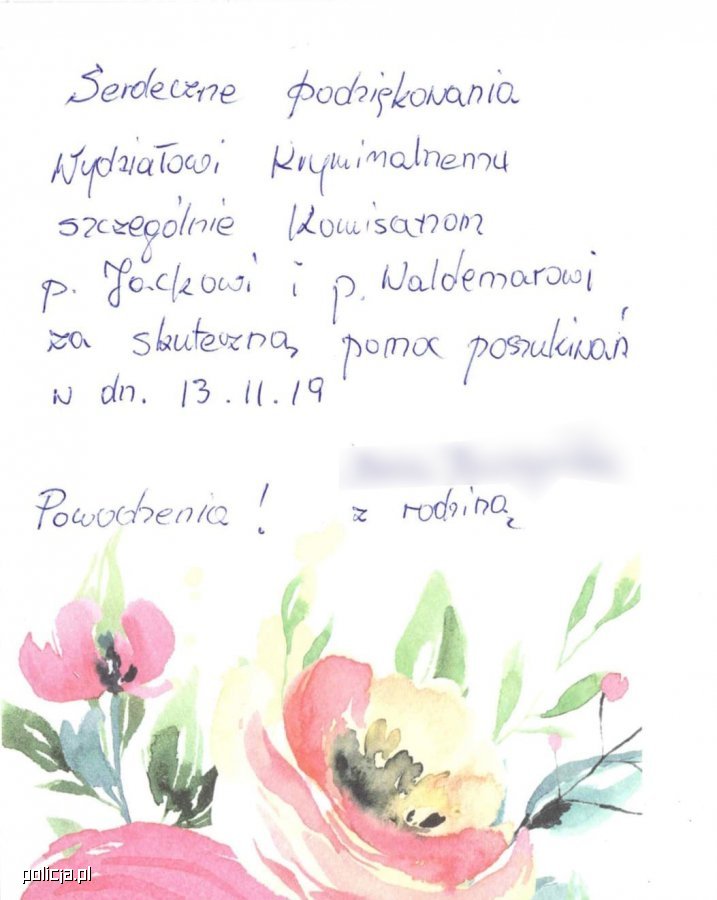 Serdeczne podziękowania
Wydziałowi Kryminalnemu
szczególnie Komisarzom
p. Jackowi i p. Waldemarowi
za skuteczną pomoc poszukiwań
w dn. 13.11.19
Powodzenia! z rodziną
policja.pl